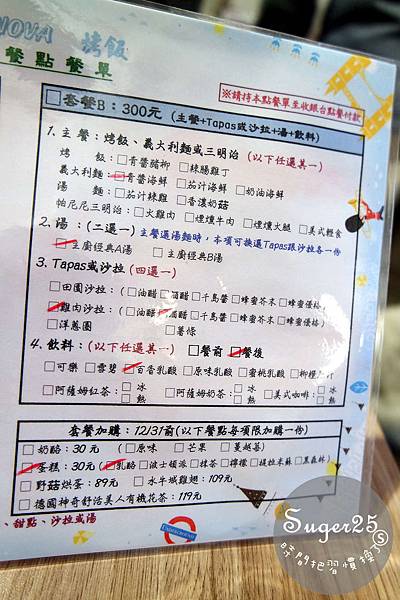 NOVA 烤飯
餐點餐單
※請持本點餐單至收銀台點餐付款
□套餐B：300元 (主餐+Tapas或沙拉+湯+飲料)
1.主餐：烤飯、義大利麵或三明治 (以下任選其一)
烤 飯：□青醬豬柳 □辣腸雞丁
義大利麵：□青醬海鮮 □茄汁海鮮 □奶油海鮮
湯 麵：□茄汁辣雞 □香濃奶菇
帕尼尼三明治：□火雞肉 □煙燻牛肉 □煙燻火腿 □美式輕食
2.湯：(二選一) 主餐選湯麵時，本項可換選Tapas跟沙拉各一份
□主廚經典A湯 □主廚經典B湯
3.Tapas或沙拉 (四選一)
□田園沙拉：(□油醋 □千島醬 □蜂蜜芥末 □蜂蜜優格)
□雞肉沙拉：(□油醋 □千島醬 □蜂蜜芥末 □蜂蜜優格)
□洋蔥圈 □薯條
4.飲料：(以下任選其一) □餐前 □餐後
□可樂 □雪碧 □百香乳酸 □原味乳酸 □蜜桃乳酸
□阿薩姆紅茶：□冰 □熱 □阿薩姆奶茶：□冰 □熱 □美式咖啡：□冰 □熱
套餐加購：12/31前(以下餐點每項限加購一份)
□奶酪：30元 (□原味 □芒果 □蔓越莓)
□蛋糕：30元 (□乳酪 □波士頓派 □抹茶 □檸檬 □提拉米蘇 □黑森林)
□野菇烘蛋：89元 □水牛城雞翅：109元
□德國神奇舒活美人有機花茶：119元
、甜點、沙拉或湯
UNDERGROUND
Suger25
時間把習慣換了
S